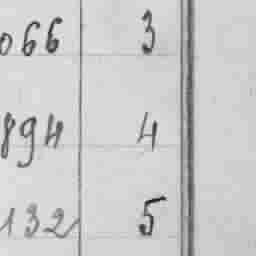 066 3
894 4
132 5